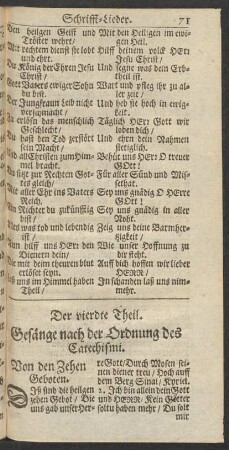 Schrifft-Lieder. 71
Den heiligen Geist und
Tröster wehrt/
Mit rechtem dienst sie lobt
und ehrt.
Du König der Ehren Jesu
Christ/
Gott Vaters ewiger Sohn
Du bist.
Der Jungfrauen Leib nicht
verschmächt/
Zu erlösen das menschlich
Geschlecht/
Du hast den Tod zerstört
sein Macht/
und all Christen zum Him-
mel bracht.
Du sitzt zur Rechten Got-
tes gleich/
Mit aller Ehr ins Vaters
Reich.
Ein Richter du zukünfftig
bist/
Alles was tod und lebendig
ist/
Nun hilff uns HErr den
Dienern dein/
Die mit deim theuren blut
erlöset seyn.
Laß uns im Himmel haben
Theil/
Mit den Heiligen im ewi-
gen Heil.
Hilff deinem volck HErr
Jesu Christ/
Und segne was dein Erb-
theil ist.
Wart und pfleg ihr zu al-
ler zeit/
Und heb sie hoch in ewig-
keit.
Täglich HErr Gott wir
loben dich/
Und ehrn dein Nahmen
stetiglich.
Behüt uns HErr O treuer
GOtt!
Für aller Sünd und Mis-
sethat.
Sey uns gnädig O HErre
GOtt!
Sey uns gnädig in aller
Noht.
Zeig uns deine Barmher-
tzigkeit/
Wie unser Hoffnung zu
dir steht.
Auff dich hoffen wir lieber
HERR/
In schanden laß uns nim-
mehr.
Der vierdte Theil.
Gesänge nach der Ordnung des
Catechismi.
Von den Zehen
Geboten.
Diß sind die heiligen
zehen Gebot/ Die
uns gab unser Her-
re Gott/ Durch Mosen sei-
nen diener treu/ Hoch auff
dem Berg Sinai/ Kyriel.
2. Ich bin allein dein Gott
und HERR/ Kein Götter
soltu haben mehr/ Du solt
mir